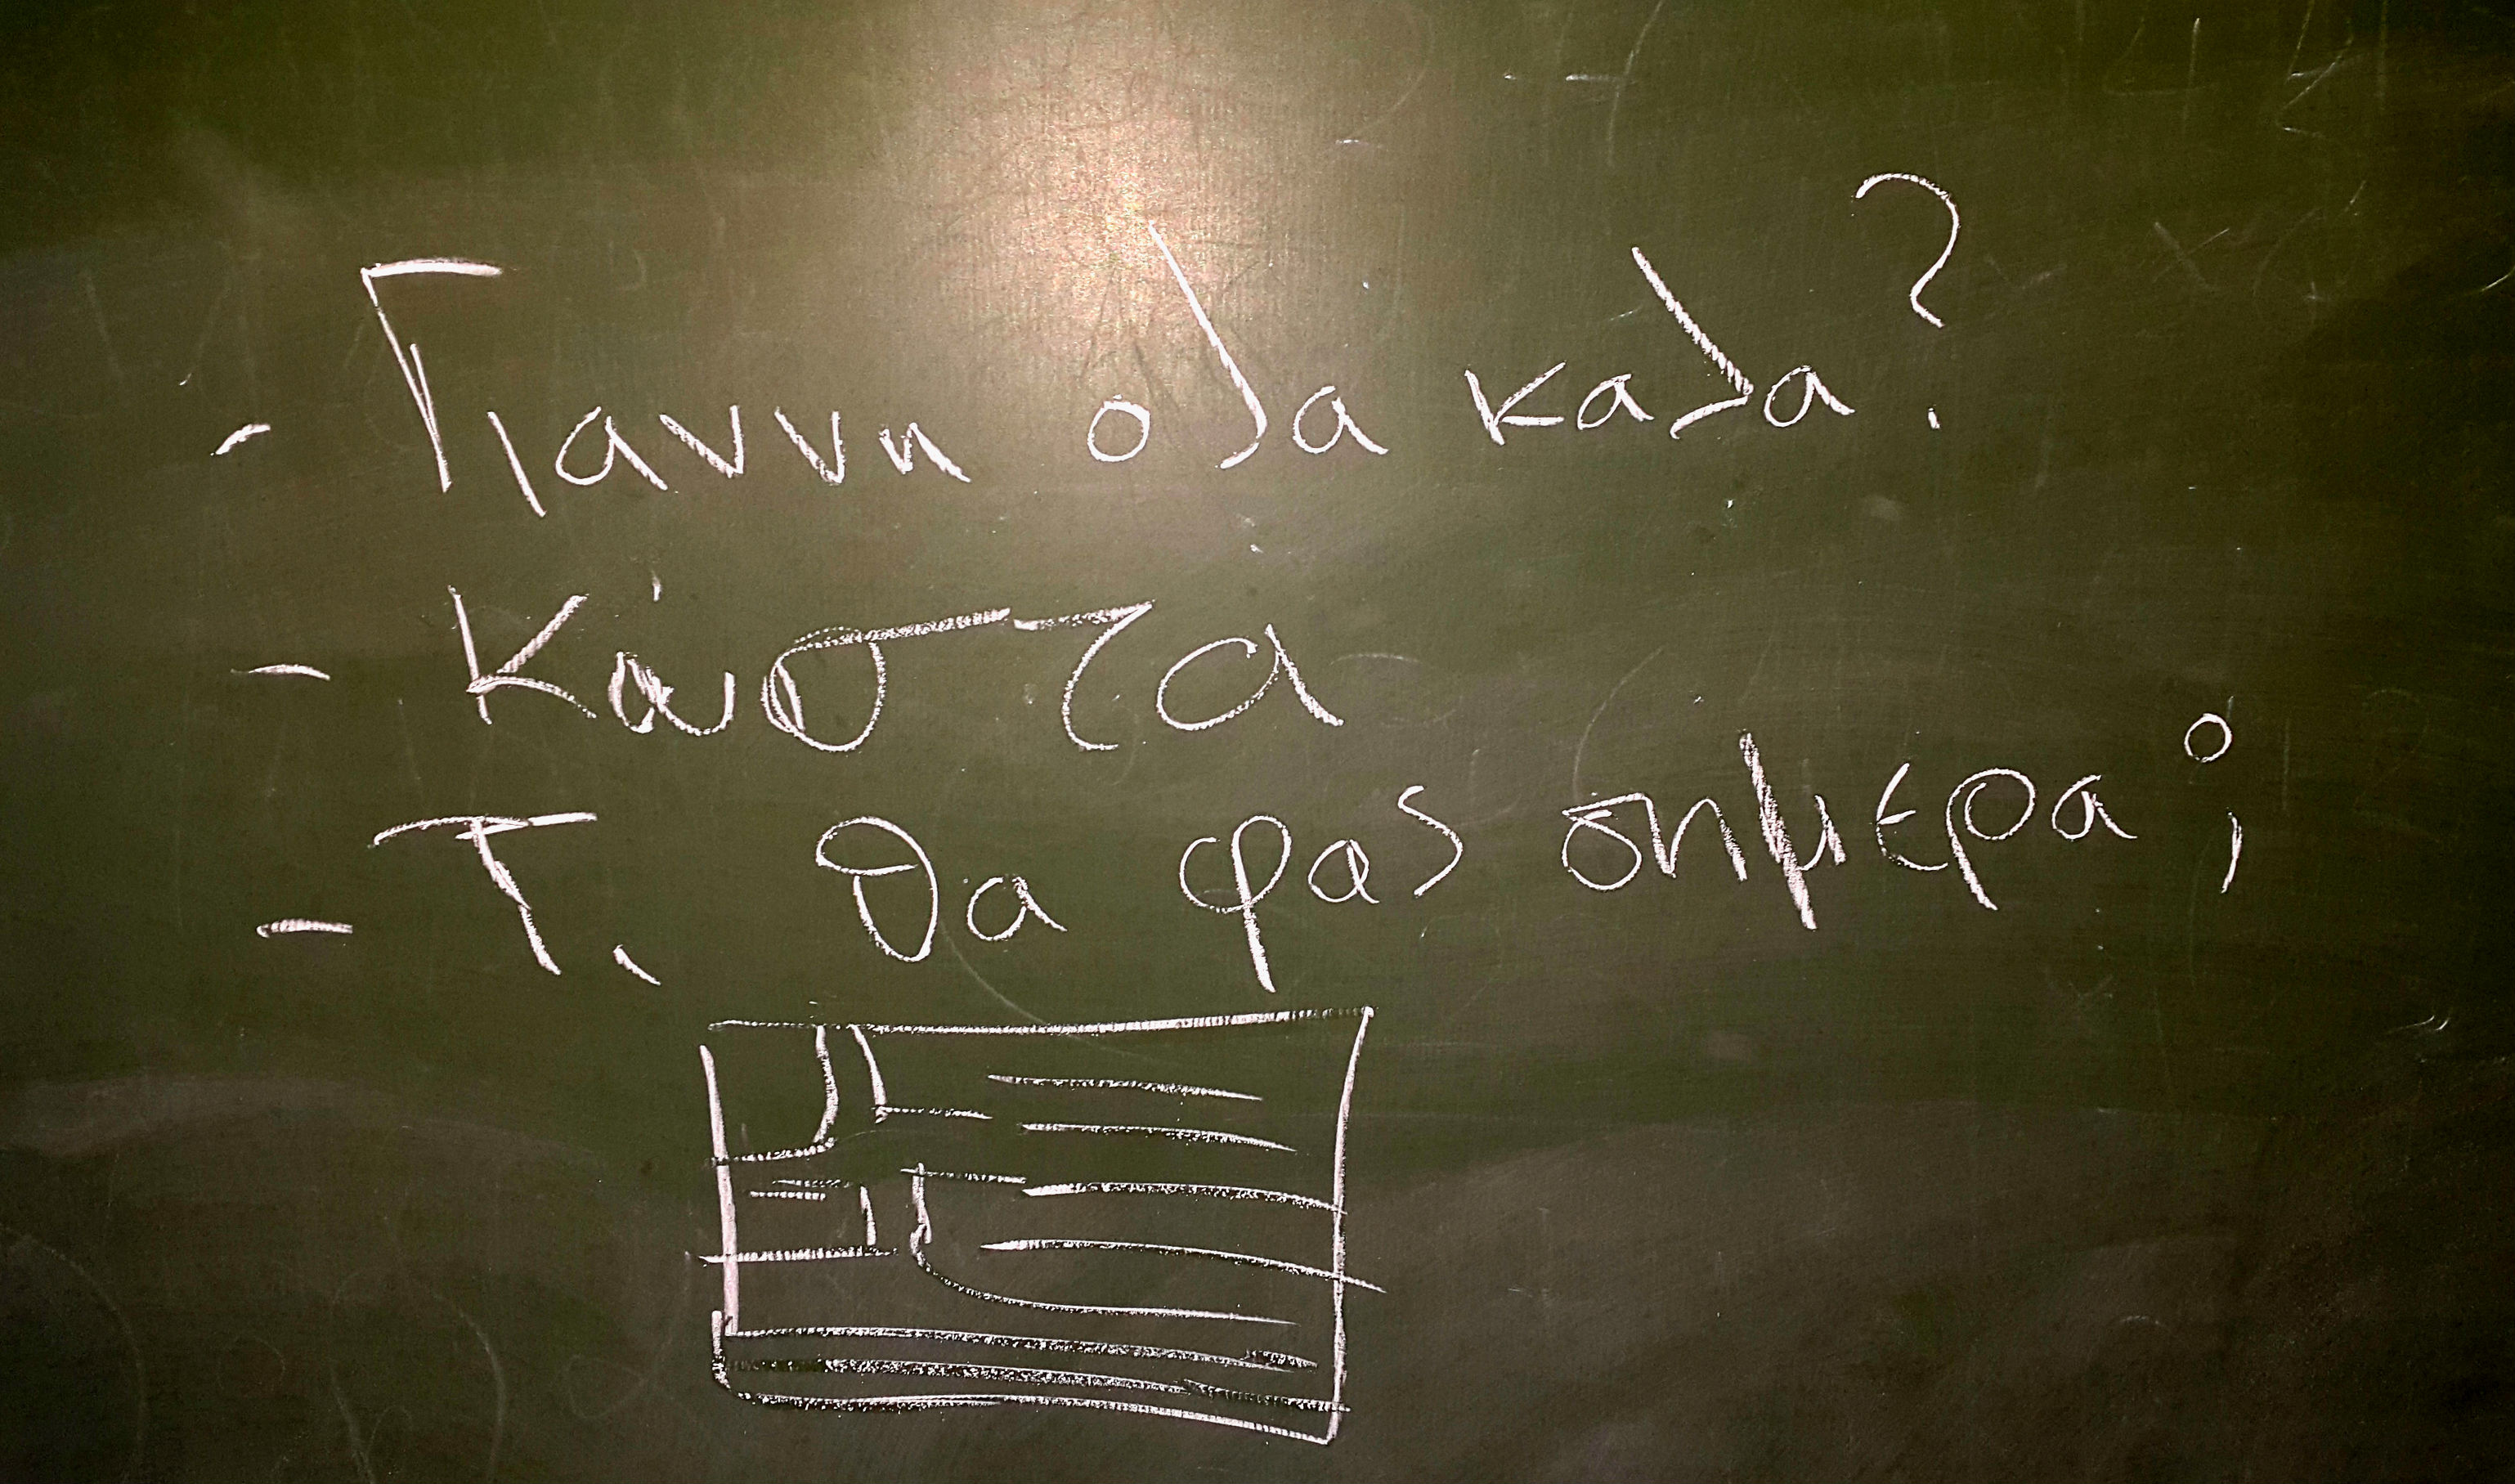 - Γιαννη ολα καλα?
- Κάυστα
- Τι θα φας σημερα;